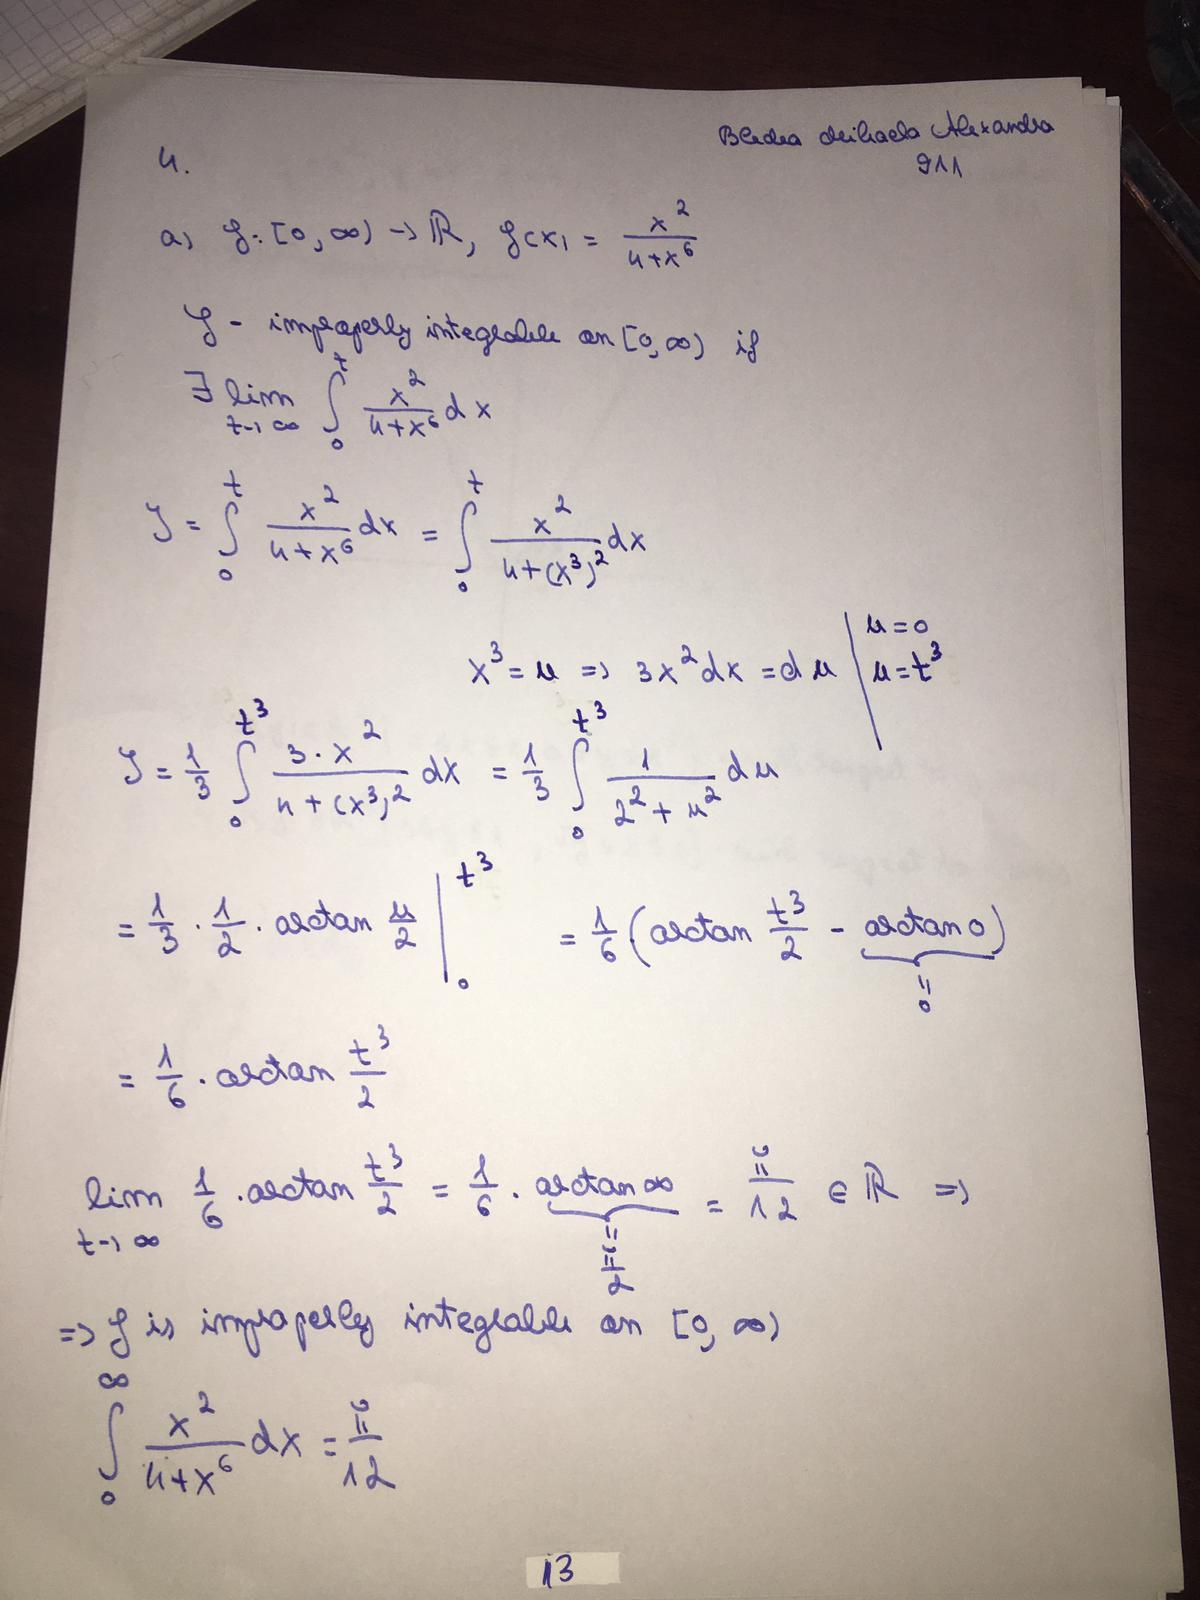 Alexandra
911
4.
a) f: [0, ∞) → ℝ, f(x) = x²/(4+x⁶)
f - improperly integrable on [0, ∞) if
∃ lim t→∞ ∫₀ᵗ x²/(4+x⁶) dx
J = ∫₀ᵗ x²/(4+x⁶) dx = ∫₀ᵗ x²/(4+(x³)²) dx
x³ = u => 3x²dx = du | u=0
u=t³
J = 1/3 ∫₀^(t³) 3·x²/(4+(x³)²) dx = 1/3 ∫₀^(t³) 1/(2²+u²) du
= 1/3 · 1/2 · arctan u/2 |₀^(t³) = 1/6 (arctan t³/2 - arctan 0)
= 0
= 1/6 · arctan t³/2
lim t→∞ 1/6 · arctan t³/2 = 1/6 · arctan ∞ = π/12 ∈ ℝ =>
= π/2
=> f is improperly integrable on [0, ∞)
∫₀^∞ x²/(4+x⁶) dx = π/12
13